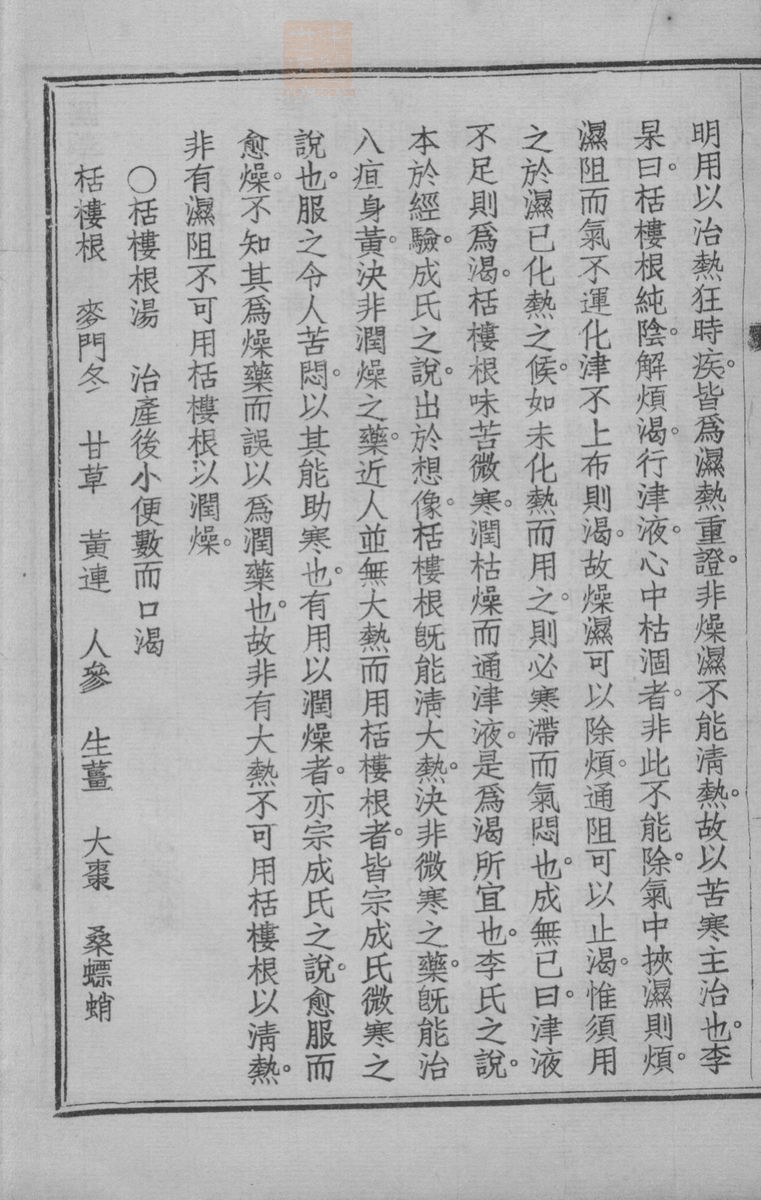 明用以治熱狂時疾。皆爲濕熱重證。非燥濕不能淸熱。故以苦寒主治也。李
杲曰。栝樓根純陰。解煩渴。行津液。心中枯涸者。非此不能除。氣中挾濕則煩。
濕阻而氣不運化。津不上布則渴。故燥濕可以除煩。通阻可以止渴。惟須用
之於濕已化熱之候。如未化熱而用之。則必寒滯而氣悶也。成無已曰。津液
不足則爲渴。栝樓根味苦微寒。潤枯燥而通津液。是爲渴所宜也。李氏之說。
本於經驗。成氏之說。出於想像。栝樓根旣能淸大熱。決非微寒之藥。旣能治
八疸身黃。決非潤燥之藥。近人並無大熱而用栝樓根者。皆宗成氏微寒之
說也。服之令人苦悶。以其能助寒也。有用以潤燥者。亦宗成氏之說。愈服而
愈燥。不知其爲燥藥而誤以爲潤藥也。故非有大熱不可用栝樓根以淸熱。
非有濕阻不可用栝樓根以潤燥。
〇栝樓根湯　治產後小便數而口渴
栝樓根　麥門冬　甘草　黃連　人參　生薑　大棗　桑螵蛸